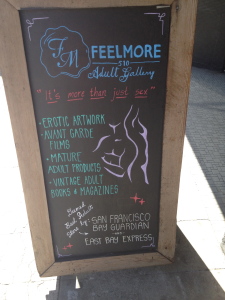 FM
FEELMORE
510
Adult Gallery
"it's more than just sex"
• EROTIC ARTWORK
• AVANT GARDE
FILMS
• MATURE
ADULT PRODUCTS
• VINTAGE ADULT
BOOKS & MAGAZINES
Named
Best Adult
Store by:
SAN FRANCISCO
BAY GUARDIAN
and
EAST BAY EXPRESS